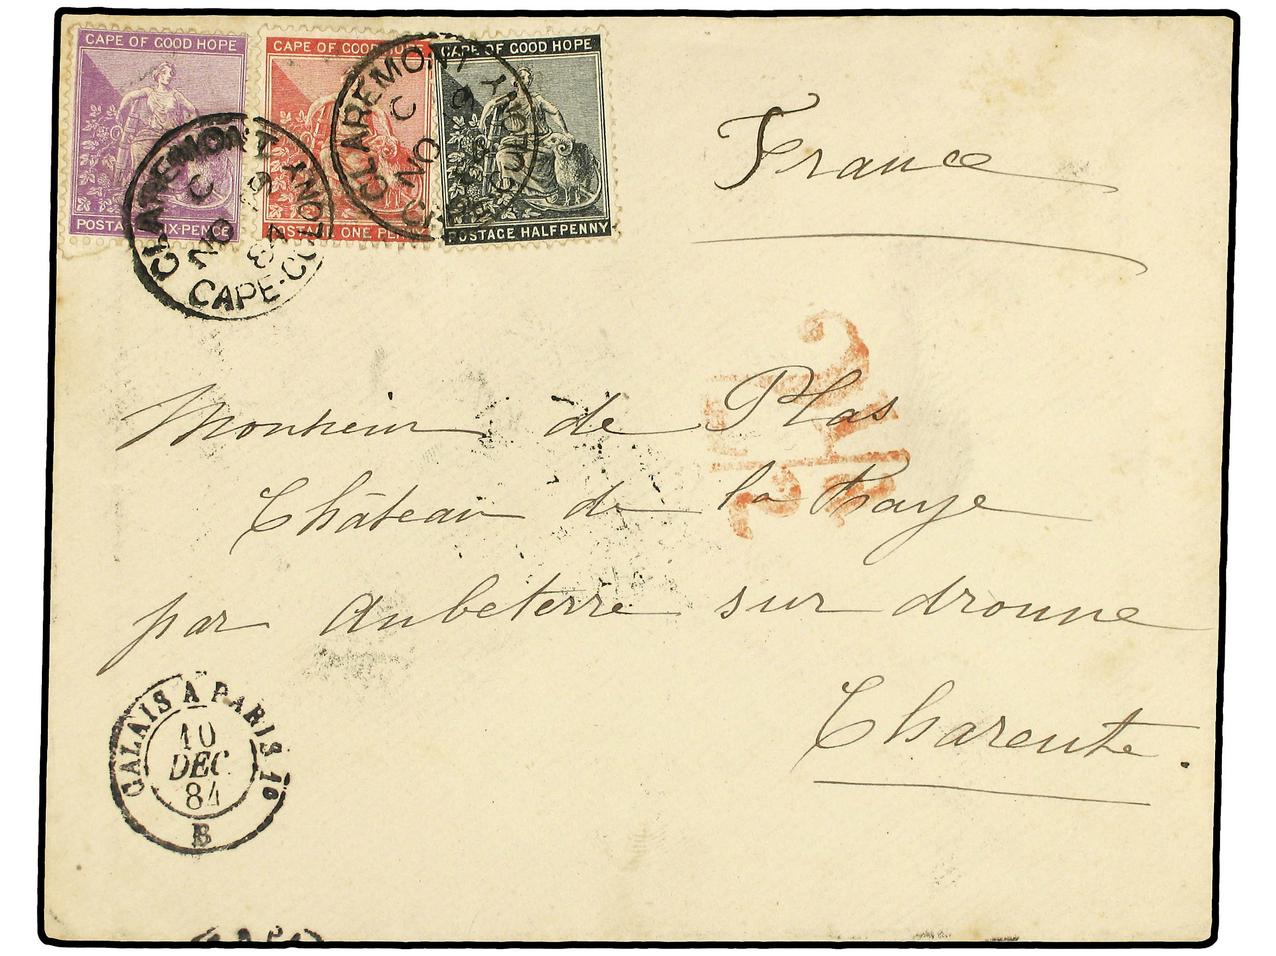 CAPE OF GOOD HOPE
POSTAGE SIX-PENCE
CAPE OF GOOD HOPE
POSTAGE ONE PENNY
CAPE OF GOOD HOPE
POSTAGE HALFPENNY
CLAREMONT
C
NO 9
84
CAPE-COLONY
CLAREMONT
C
NO 9
CAPE-COLONY
France
2½
Monsieur de Plas
Château de la Faye
par Aubeterre sur dronne
Charente.
CALAIS A PARIS 1º
10
DEC
84
B